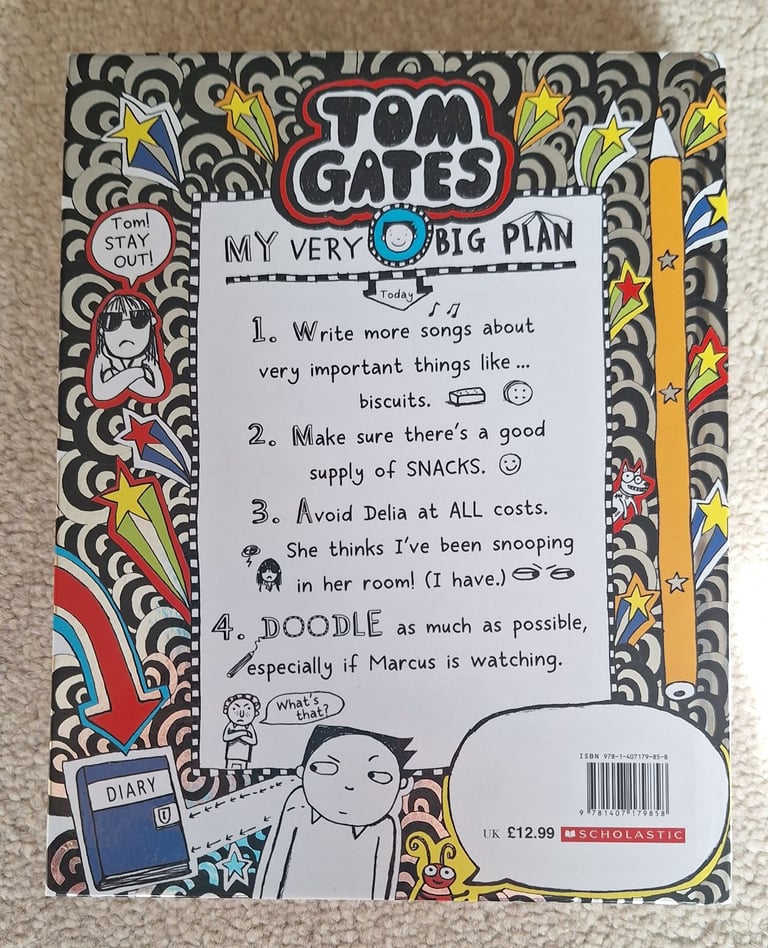 TOM
GATES
MY VERY BIG PLAN
Today
Tom!
STAY
OUT!
1. Write more songs about
very important things like ...
biscuits.
2. Make sure there's a good
supply of SNACKS.
3. Avoid Delia at ALL costs.
She thinks I've been snooping
in her room! (I have.)
4. DOODLE as much as possible,
especially if Marcus is watching.
What's
that?
DIARY
ISBN 978-1-407179-85-8
9 781407 179858
UK £12.99 SCHOLASTIC